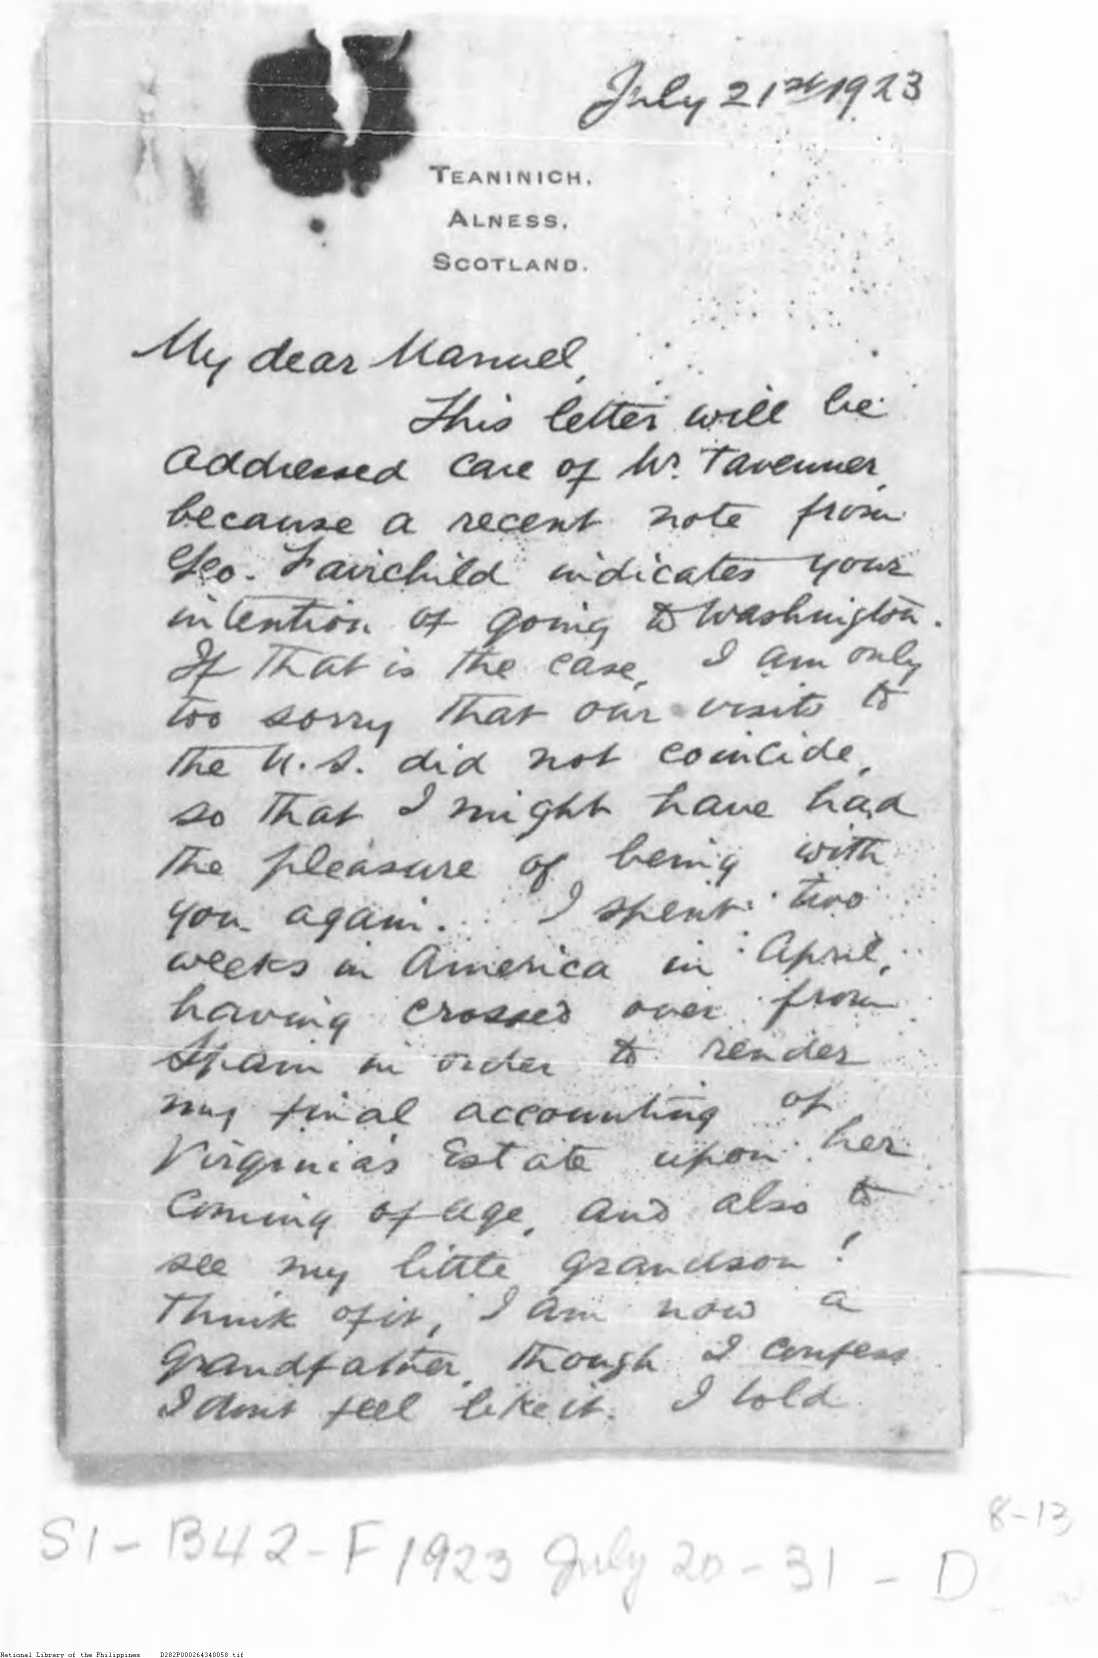 July 21st 1923
TEANINICH,
ALNESS,
SCOTLAND.
My dear Manuel,
This letter will be
addressed care of Mr. Tavenner,
because a recent note from
Geo. Fairchild indicates your
intention of going to Washington.
If that is the case, I am only
too sorry that our visits to
the U.S. did not coincide,
so that I might have had
the pleasure of being with
you again. I spent two
weeks in America in April,
having crossed over from
Spain in order to render
my final accounting of
Virginia's Estate upon her
coming of age, and also to
see my little grandson!
Think of it, I am now a
grandfather, though I confess
I dont feel like it. I told
8-13
S1-B42-F1923 July 20-31-D
National Library of the Philippines D282P000264340058.tif